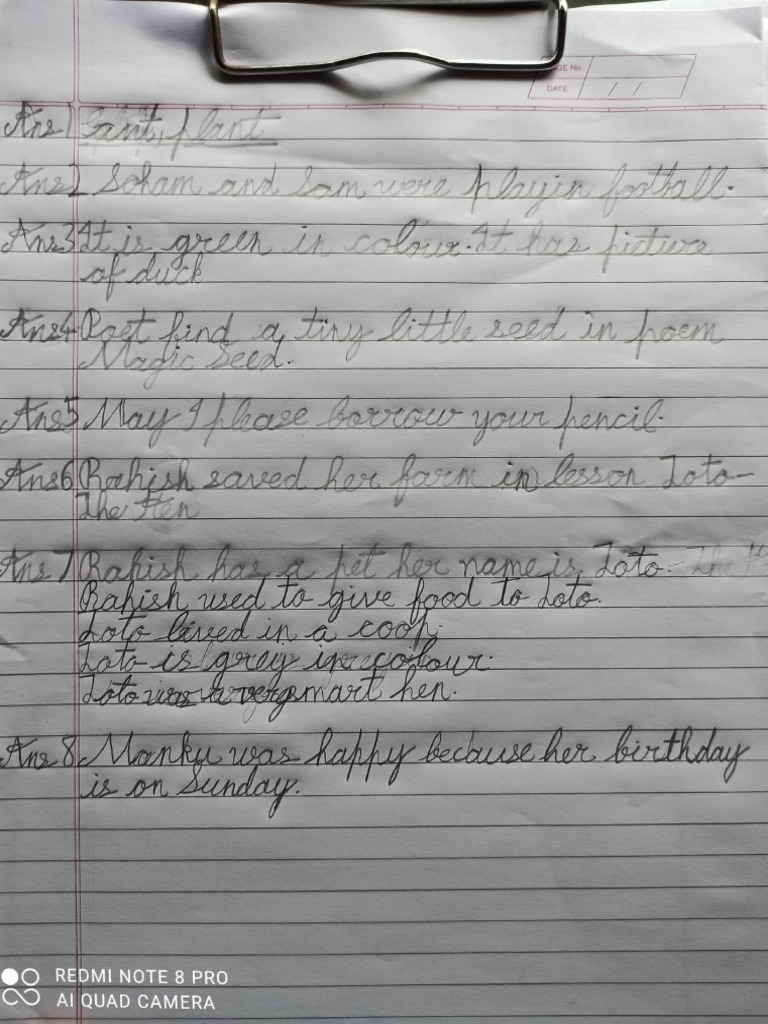 GE No.
DATE / /
Ans 1 ant, plant
Ans 2 Soham and Sam were playin football.
Ans 3 It is green in colour. It has picture
of duck
Ans 4 Poet find a tiny little seed in poem
Magic Seed.
Ans 5 May I please borrow your pencil.
Ans 6 Rahish saved her farm in lesson Toto-
The Hen
Ans 7 Rahish has a pet her name is Toto - The
Rahish used to give food to Toto.
Toto lived in a coop.
Toto is grey in colour.
Toto was a very smart hen.
Ans 8 Manku was happy because her birthday
is on Sunday.
REDMI NOTE 8 PRO
AI QUAD CAMERA